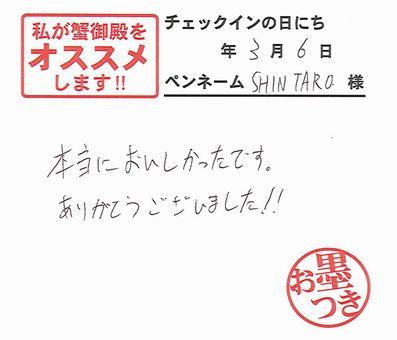 私が蟹御殿を
オススメ
します!!
チェックインの日にち
年 3 月 6 日
ペンネーム SHINTARO 様
本当においしかったです。
ありがとうございました!!
お墨つき